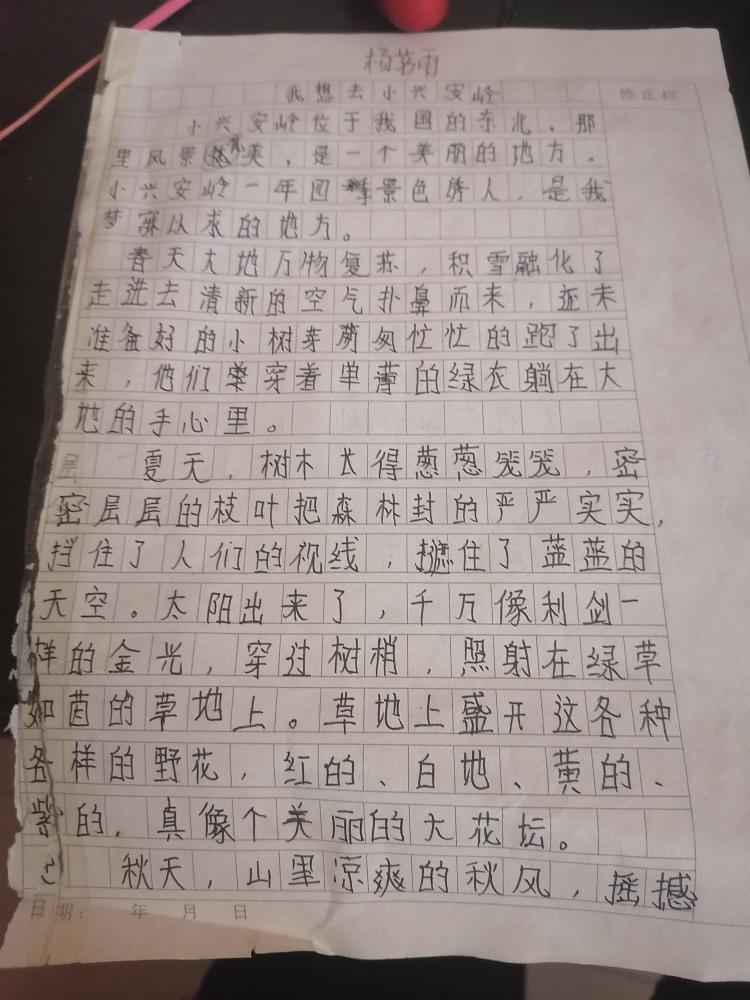 杨茗雨
我想去小兴安岭
修正栏
小兴安岭位于我国的东北，那
里风景优美，是一个美丽的地方。
小兴安岭一年四季景色诱人，是我
梦寐以求的地方。
春天大地万物复苏，积雪融化了
走进去清新的空气扑鼻而来，还未
准备好的小树芽萌匆忙忙的跑了出
来，他们穿着单薄的绿衣躺在大
地的手心里。
夏天，树木长得葱葱笼笼，密
密层层的枝叶把森林封的严严实实，
挡住了人们的视线，遮住了蓝蓝的
天空。太阳出来了，千万像利剑一
样的金光，穿过树梢，照射在绿草
如茵的草地上。草地上盛开这各种
各样的野花，红的、白地、黄的、
紫的，真像个美丽的大花坛。
秋天，山里凉爽的秋风，摇撼
日期： 年 月 日